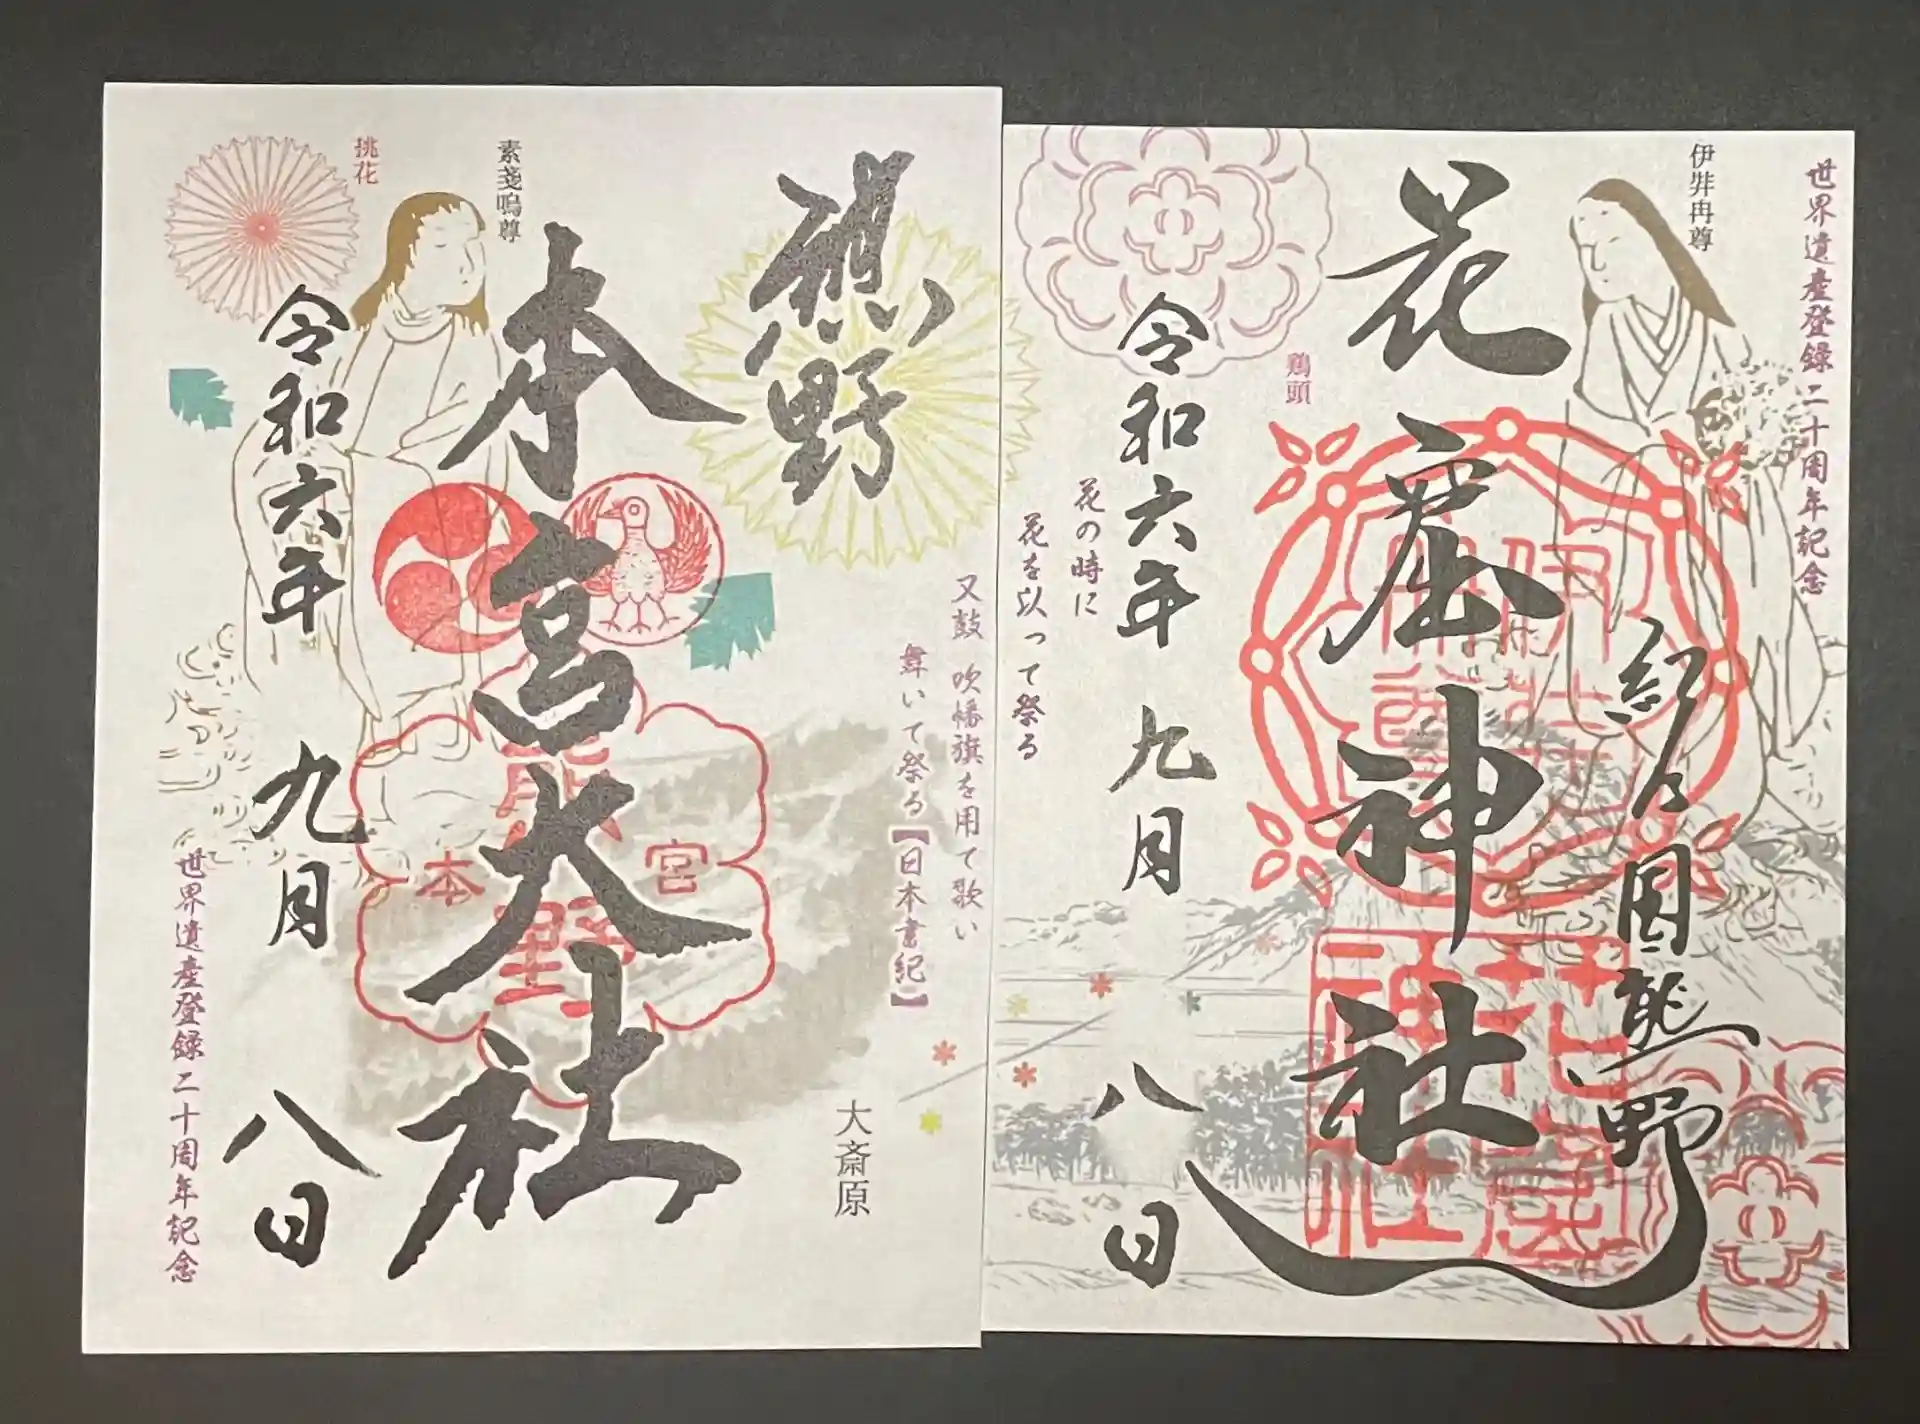 世界遺産登録二十周年記念
伊弉冉尊
紀の国熊野
花窟神社
鶏頭
令和六年 九月 八日
花の時に
花を以って祭る
花窟
神社
熊野
大斎原
又鼓 吹幡旗を用て歌い
舞いて祭る【日本書紀】
本宮大社
素戔嗚尊
熊野
本
宮
挑花
令和六年 九月 八日
世界遺産登録二十周年記念